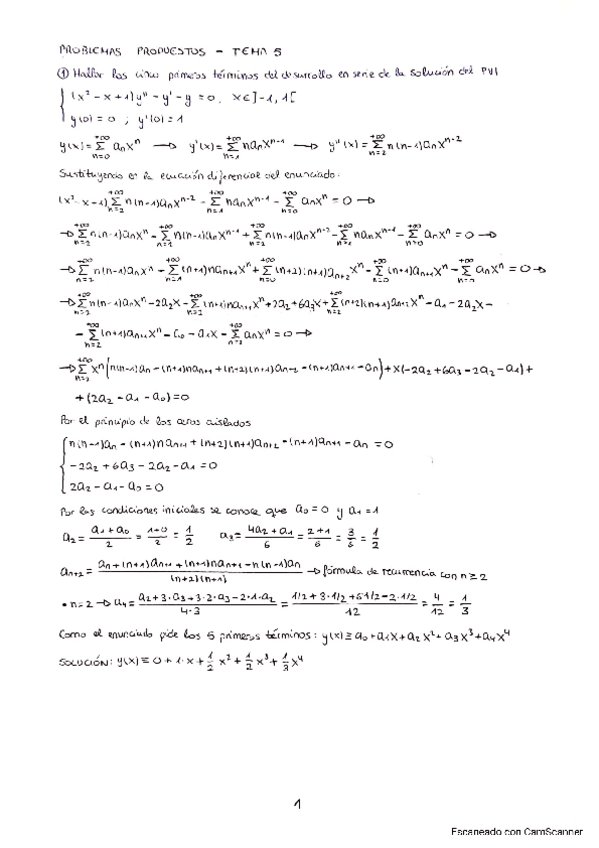 PROBLEMAS PROPUESTOS - TEMA 5
① Hallar los cinco primeros términos del desarrollo en serie de la solución del PVI
(x² - x + 1)y'' - y' - y = 0, x∈]-1, 1[
y(0) = 0 ; y'(0) = 1
y(x) = Σ_{n=0}^{+∞} aₙxⁿ → y'(x) = Σ_{n=1}^{+∞} naₙxⁿ⁻¹ → y''(x) = Σ_{n=2}^{+∞} n(n-1)aₙxⁿ⁻²
Sustituyendo en la ecuación diferencial del enunciado:
(x² - x + 1) Σ_{n=2}^{+∞} n(n-1)aₙxⁿ⁻² - Σ_{n=1}^{+∞} naₙxⁿ⁻¹ - Σ_{n=0}^{+∞} aₙxⁿ = 0 →
→ Σ_{n=2}^{+∞} n(n-1)aₙxⁿ - Σ_{n=2}^{+∞} n(n-1)aₙxⁿ⁻¹ + Σ_{n=2}^{+∞} n(n-1)aₙxⁿ⁻² - Σ_{n=1}^{+∞} naₙxⁿ⁻¹ - Σ_{n=0}^{+∞} aₙxⁿ = 0 →
→ Σ_{n=2}^{+∞} n(n-1)aₙxⁿ - Σ_{n=1}^{+∞} (n+1)naₙ₊₁xⁿ + Σ_{n=0}^{+∞} (n+2)(n+1)aₙ₊₂xⁿ - Σ_{n=0}^{+∞} (n+1)aₙ₊₁xⁿ - Σ_{n=0}^{+∞} aₙxⁿ = 0 →
→ Σ_{n=2}^{+∞} n(n-1)aₙxⁿ - 2a₂x - Σ_{n=2}^{+∞} (n+1)naₙ₊₁xⁿ + 2a₂ + 6a₃x + Σ_{n=2}^{+∞} (n+2)(n+1)aₙ₊₂xⁿ - a₁ - 2a₂x -
- Σ_{n=2}^{+∞} (n+1)aₙ₊₁xⁿ - a₀ - a₁x - Σ_{n=2}^{+∞} aₙxⁿ = 0 →
→ Σ_{n=2}^{+∞} xⁿ(n(n-1)aₙ - (n+1)naₙ₊₁ + (n+2)(n+1)aₙ₊₂ - (n+1)aₙ₊₁ - aₙ) + x(-2a₂ + 6a₃ - 2a₂ - a₁) +
+ (2a₂ - a₁ - a₀) = 0
Por el principio de los ceros aislados
n(n-1)aₙ - (n+1)naₙ₊₁ + (n+2)(n+1)aₙ₊₂ - (n+1)aₙ₊₁ - aₙ = 0
-2a₂ + 6a₃ - 2a₂ - a₁ = 0
2a₂ - a₁ - a₀ = 0
Por las condiciones iniciales se conoce que a₀ = 0 y a₁ = 1
a₂ = (a₁ + a₀)/2 = (1+0)/2 = 1/2 a₃ = (4a₂ + a₁)/6 = (2+1)/6 = 3/6 = 1/2
aₙ₊₂ = (aₙ + (n+1)aₙ₊₁ + (n+1)naₙ₊₁ - n(n-1)aₙ)/((n+2)(n+1)) → fórmula de recurrencia con n ≥ 2
• n = 2 → a₄ = (a₂ + 3·a₃ + 3·2·a₃ - 2·1·a₂)/(4·3) = (1/2 + 3·1/2 + 6·1/2 - 2·1/2)/12 = 4/12 = 1/3
Como el enunciado pide los 5 primeros términos: y(x) ≅ a₀ + a₁x + a₂x² + a₃x³ + a₄x⁴
SOLUCIÓN: y(x) ≅ 0 + 1·x + 1/2 x² + 1/2 x³ + 1/3 x⁴
1
Escaneado con CamScanner